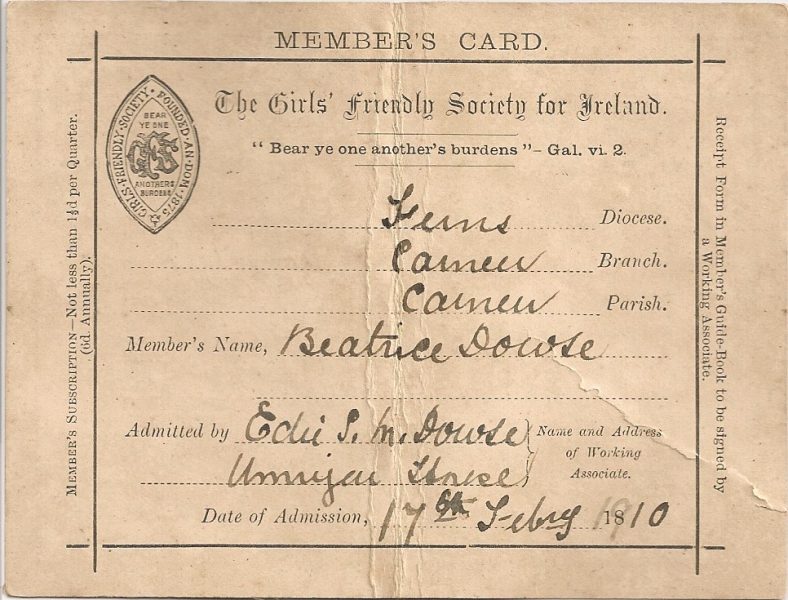 MEMBER'S CARD.
GIRLS·FRIENDLY·SOCIETY·FOUNDED·AN·DOM·1875
BEAR
YE ONE
ANOTHERS
BURDENS
The Girls' Friendly Society for Ireland.
"Bear ye one another's burdens"—Gal. vi. 2.
Ferns Diocese.
Carnew Branch.
Carnew Parish.
Member's Name, Beatrice Dowse
Admitted by Edie S. M. Dowse
Name and Address
of Working
Associate.
House
Date of Admission, 17th Febry 1910
Member's Subscription—Not less than 1½d per Quarter.
(6d. Annually).
Receipt Form in Member's Guide-Book to be signed by
a Working Associate.